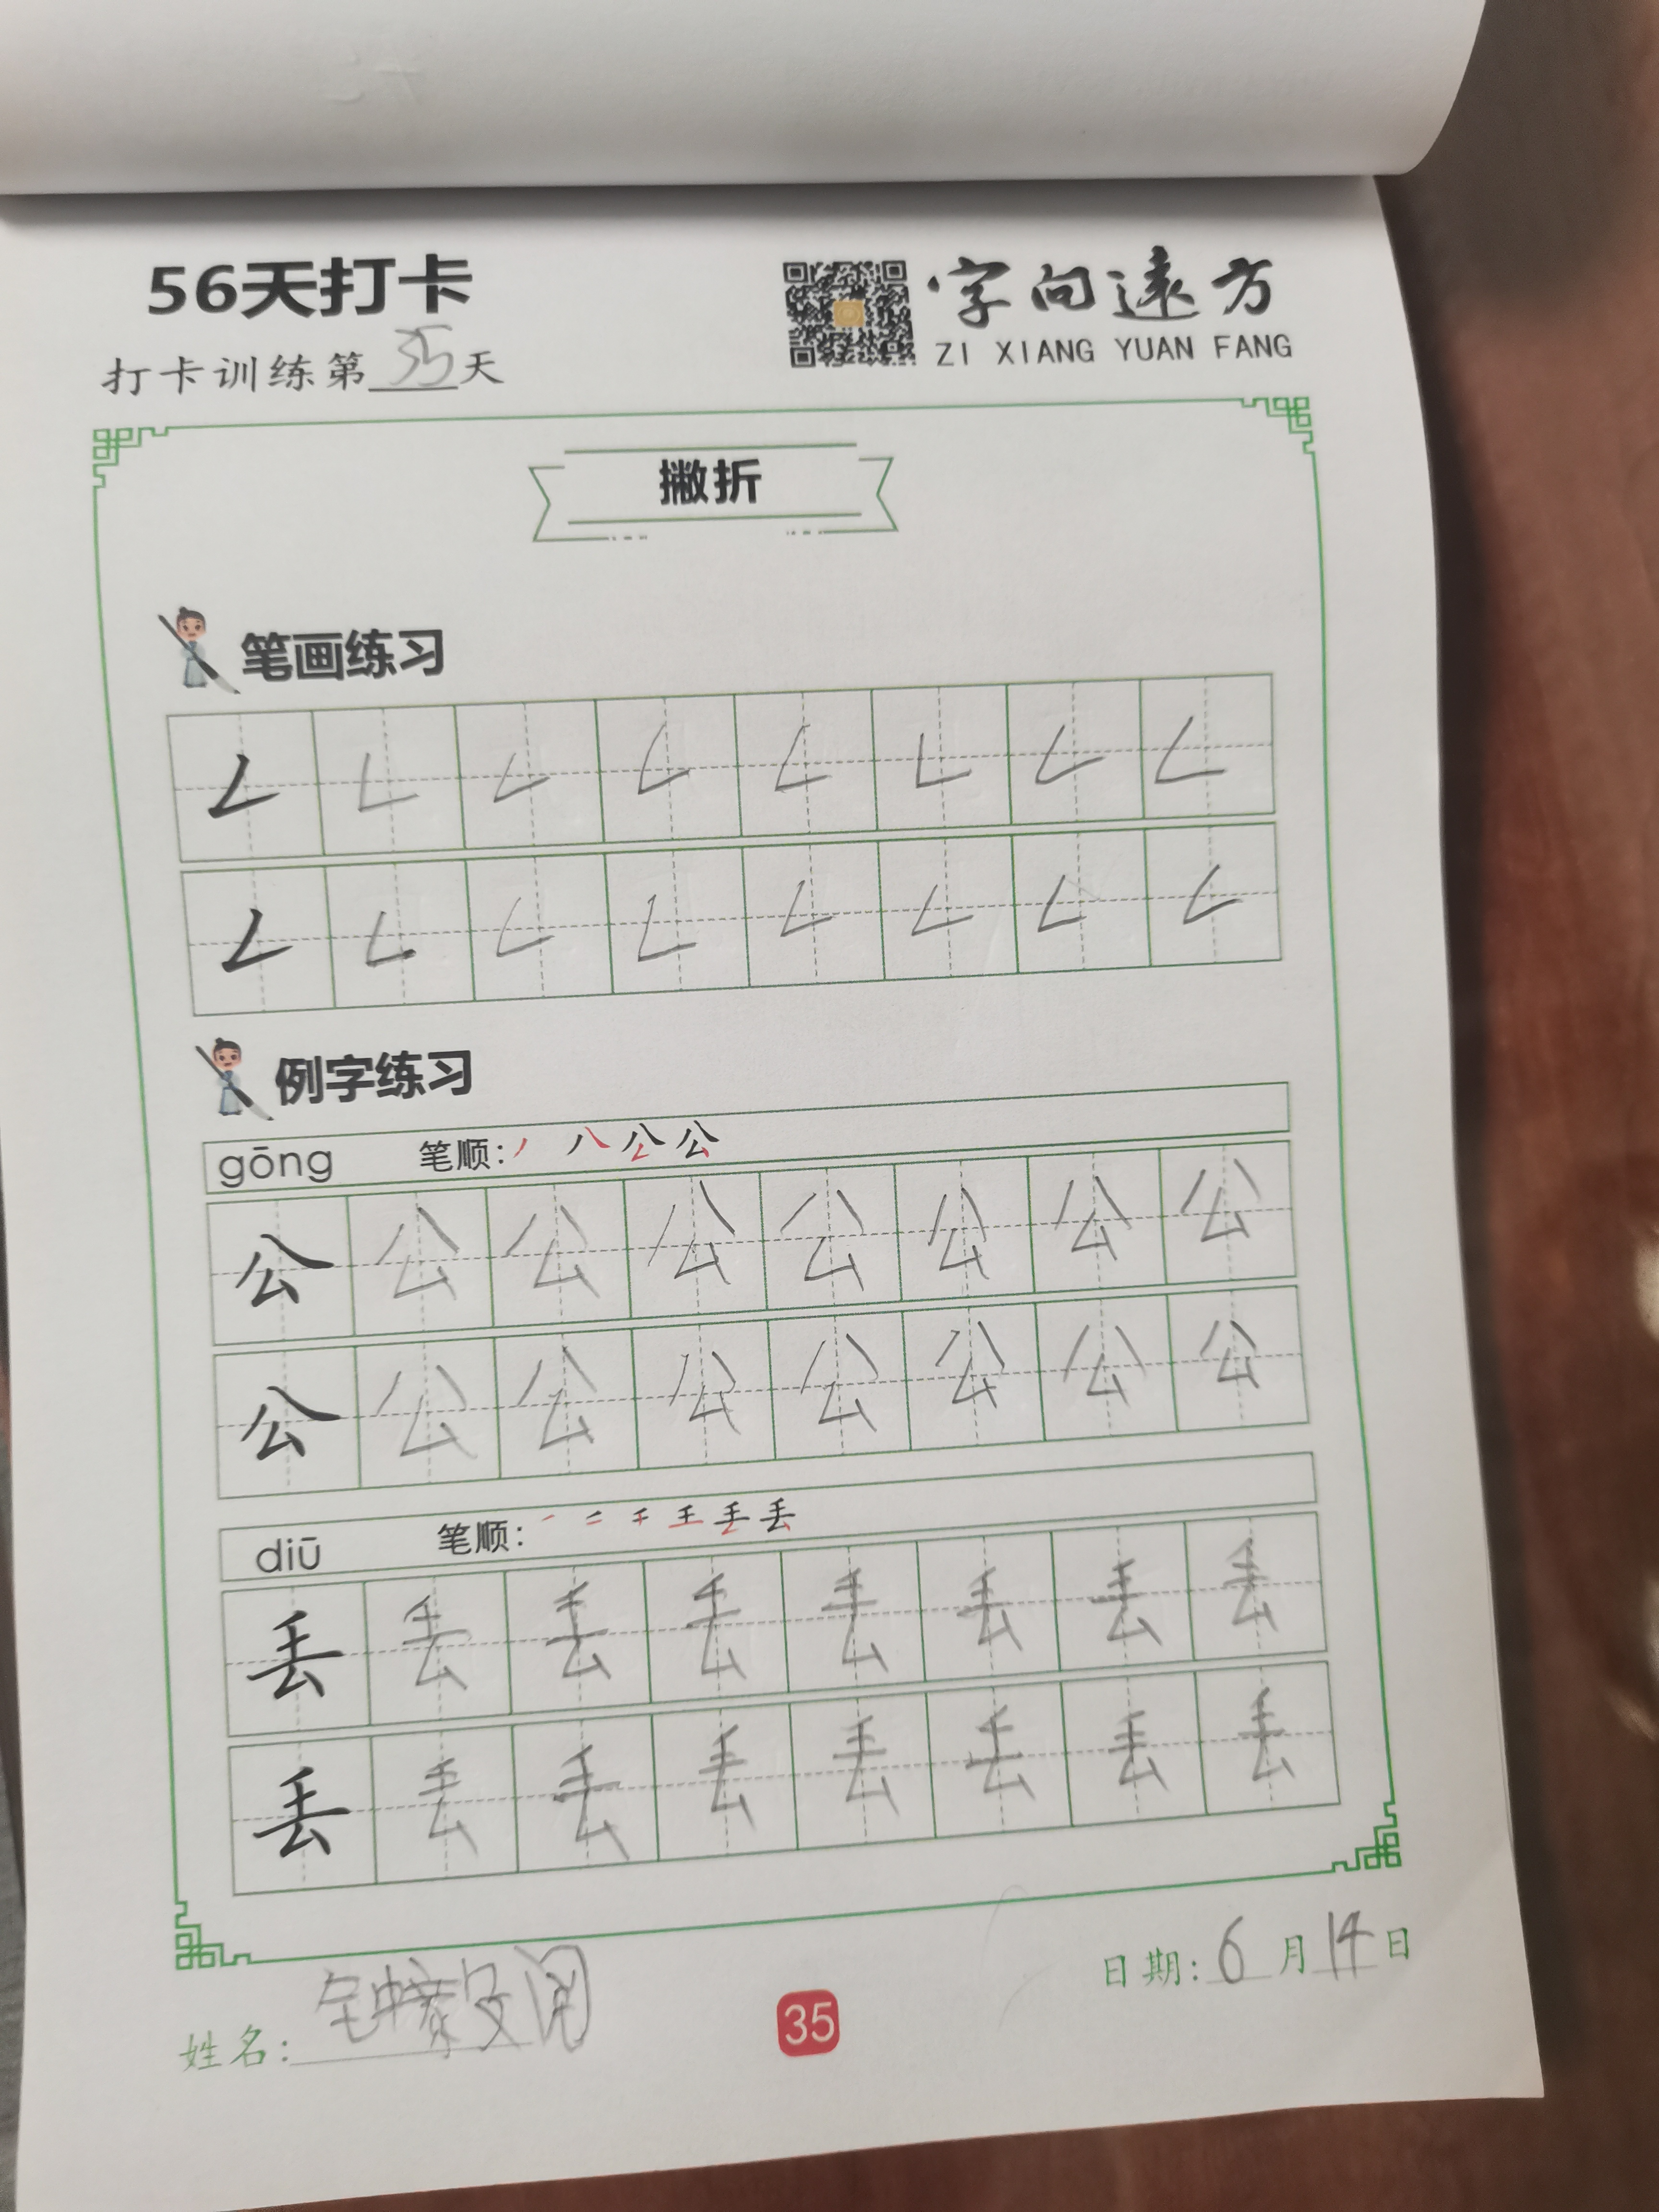 56天打卡
字向遠方
ZI XIANG YUAN FANG
打卡训练第35天
撇折
笔画练习
𠃋 𠃋 𠃋 𠃋 𠃋 𠃋 𠃋 𠃋
𠃋 𠃋 𠃋 𠃋 𠃋 𠃋 𠃋 𠃋
例字练习
gōng 笔顺: 丿 八 公 公
公 公 公 公 公 公 公 公
公 公 公 公 公 公 公 公
diū 笔顺: 丢 丢
丢 丢 丢 丢 丢 丢 丢 丢
丢 丢 丢 丢 丢 丢 丢 丢
日期: 6月14日
姓名:
35